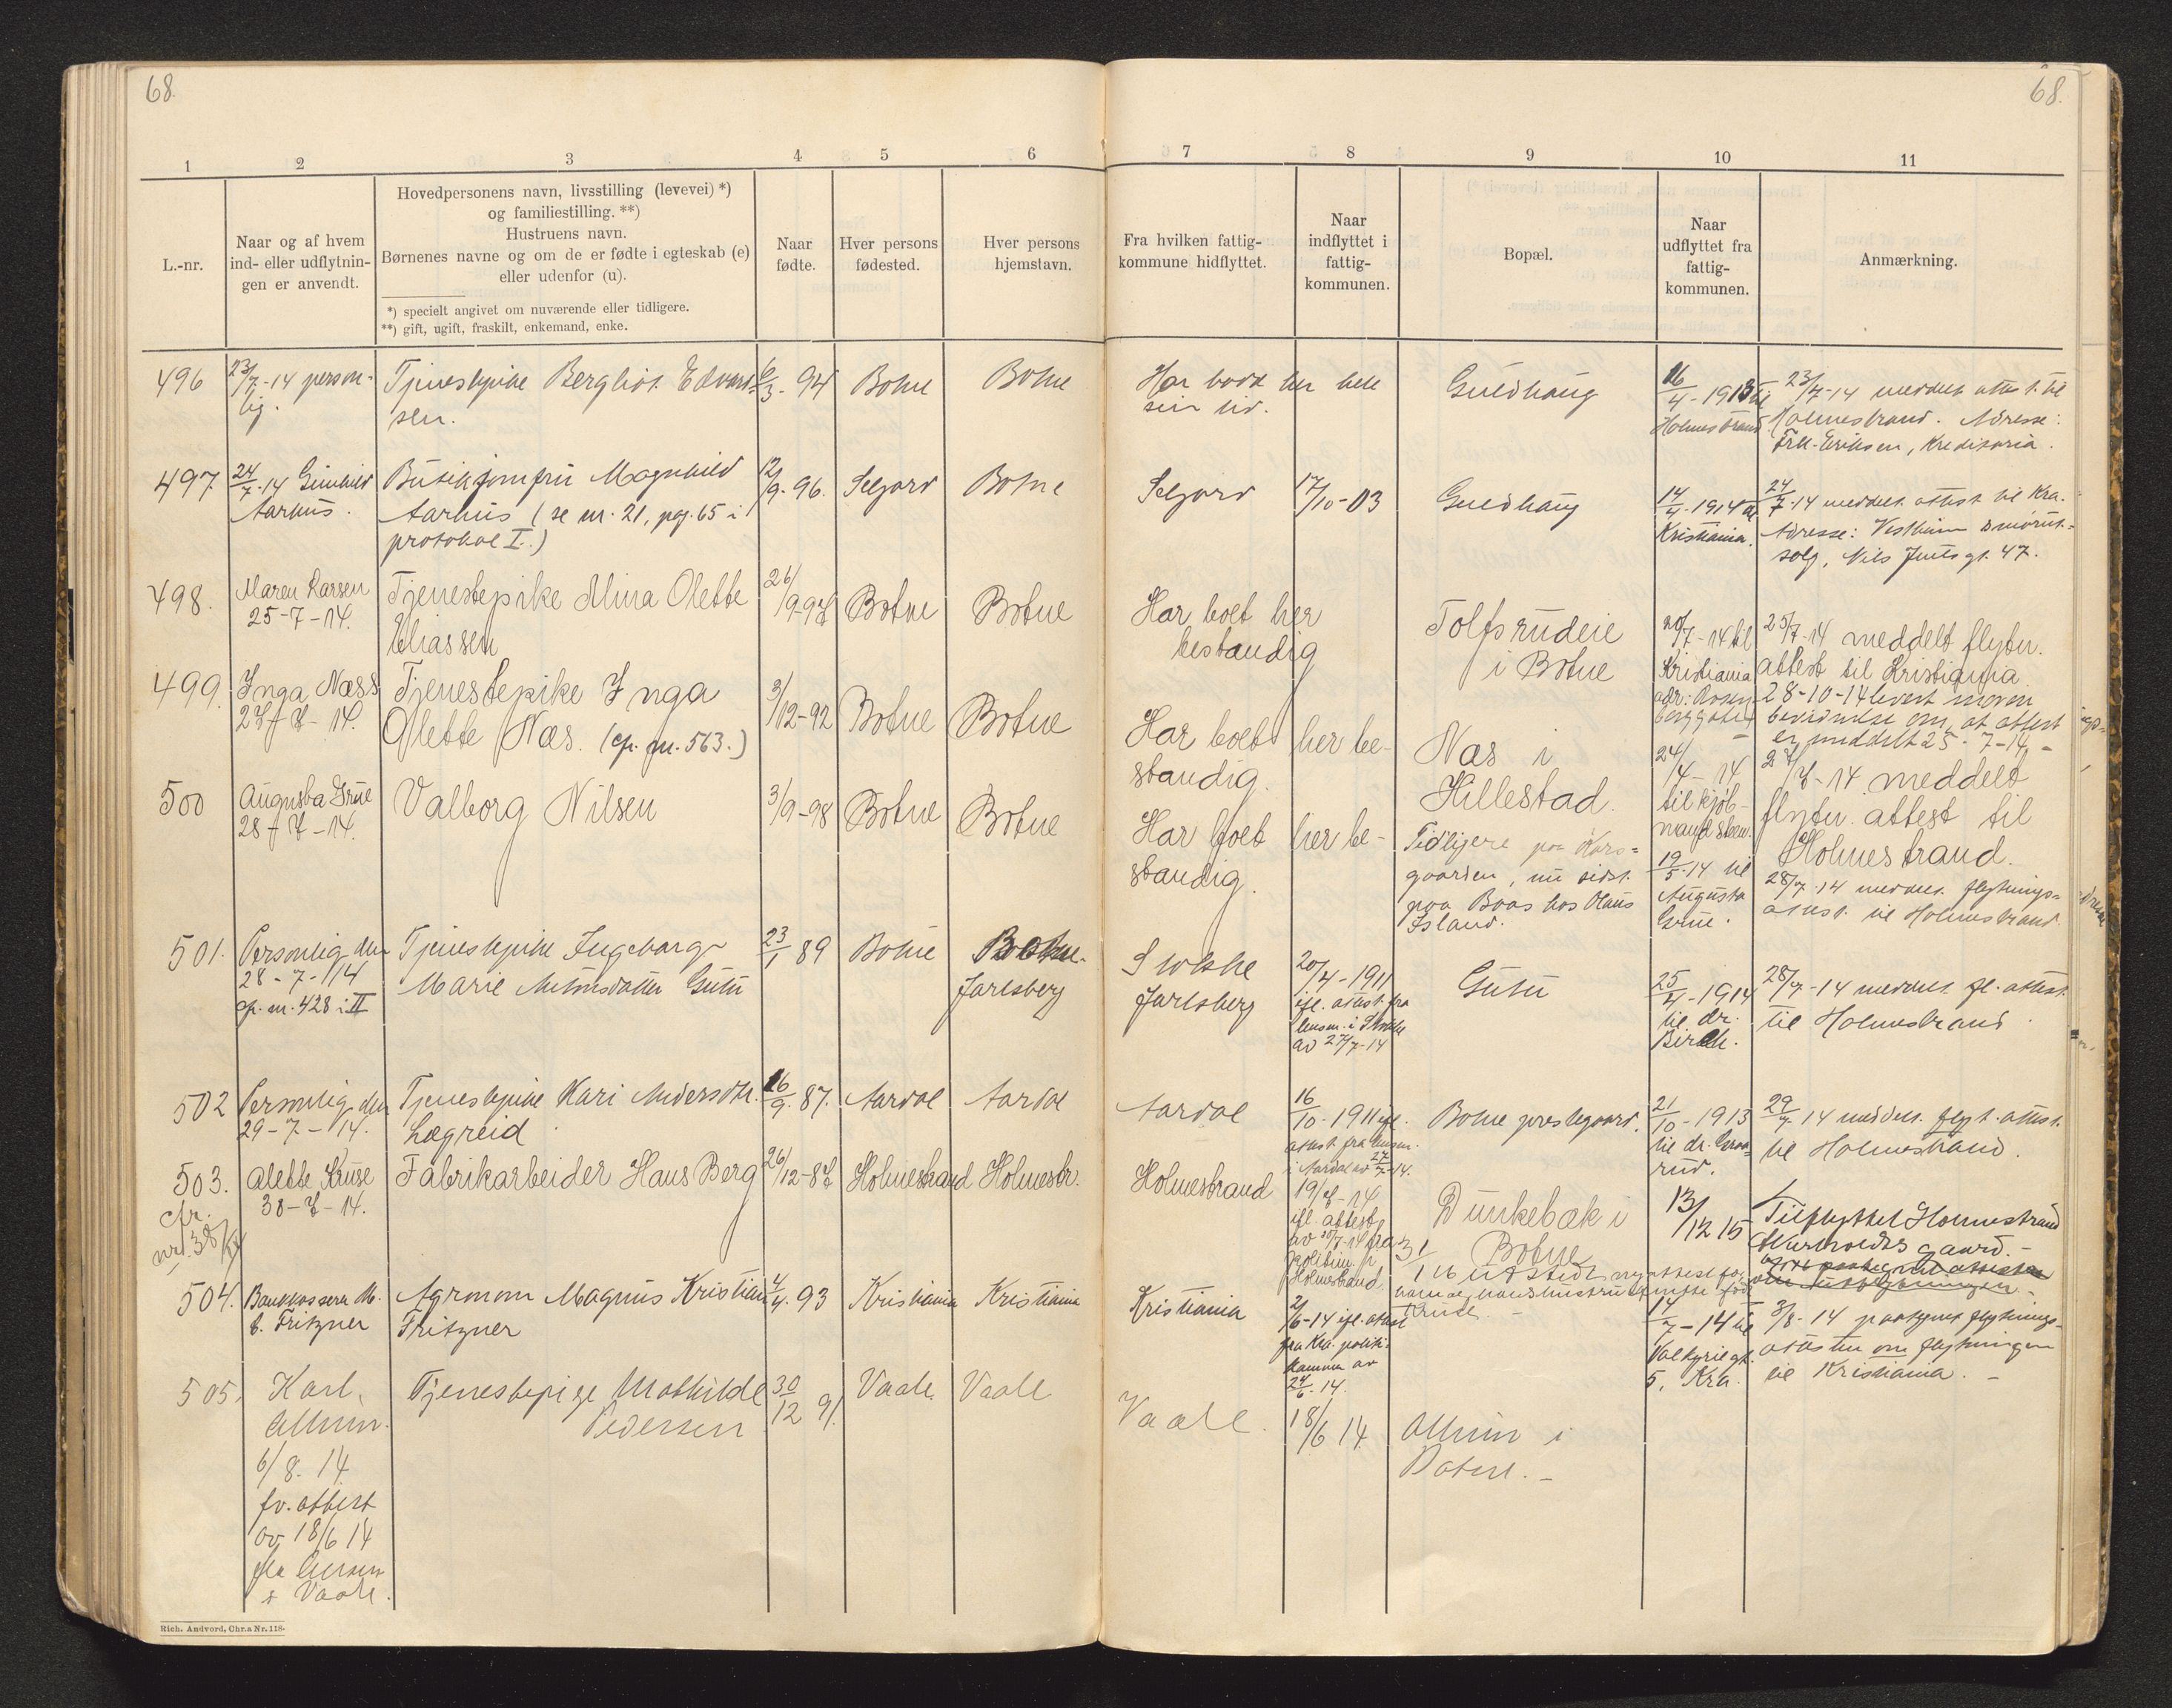 68.
68.
1
2
3
4
5
6
7
8
9
10
11
L.-nr.
Naar og af hvem
ind- eller udflytnin-
gen er anvendt.
Hovedpersonens navn, livsstilling (levevei) *)
og familiestilling. **)
Hustruens navn.
Børnenes navne og om de er fødte i egteskab (e)
eller udenfor (u).
*) specielt angivet om nuværende eller tidligere.
**) gift, ugift, fraskilt, enkemand, enke.
Naar
fødte.
Hver persons
fødested.
Hver persons
hjemstavn.
Fra hvilken fattig-
kommune hidflyttet.
Naar
indflyttet i
fattig-
kommunen.
Bopæl.
Naar
udflyttet fra
fattig-
kommunen.
Anmærkning.
496
23/7-14 person-
lig.
Tjenestepike Bergliot Edvard-
sen.
6/3-94
Botne
Botne
Har bodd her hele
sin tid.
Guldhaug
16/4-1913 til
Holmestrand
23/7-14 meddelt attest til
Holmestrand. Adresse:
Frk. Eriksen, Kreditaria.
497
24/7-14 Gunhild
Aarhus.
Butikjomfru Magnhild
Aarhus (se nr. 21, pag. 65 i
protokol I.)
12/9-96.
Seljord
Botne
Seljord
17/10-03
Guldhaug
14/4-1914 til
Kristiania.
24/7-14 meddelt attest til Kra.
Adresse: Vestheim smørut-
salg, Nils Juels gt. 47.
498.
Maren Larsen
25-7-14.
Tjenestepike Mina Olette
Eliassen
26/9-97
Botne
Botne
Har boet her
bestandig
Tolfsrudeie
i Botne
20/7-14 til
Kristiania
adr: Rosen-
25/7-14 meddelt flytn.
attest til Kristiania.
28-10-14 levert moren
bevidnelse om, at attest
er meddelt 25-7-14.-
499.
Inga Næss
27-7-14.
Tjenestepike Inga
Olette Næs. (cp. nr. 563.)
3/12-92
Botne
Botne
Har boet her be-
standig.
Næs i
Hillestad.
24/4-14
til kjøb-
27/7-14 meddelt
flytn. attest til
Holmestrand.
500
Augusta Grue
28-7-14.
Valborg Nilsen
3/9-98
Botne
Botne
Har boet her be-
standig.
Tidligere paa Kors-
gaarden, nu sidst
paa Boas hos Olaus
Island.
19/5-14 til
Augusta
Grue.
28/7-14 meddelt flytnings-
attest til Holmestrand.
501.
Personlig den
28-7-14
cp. nr. 428 i II
Tjenestepike Ingeborg
Marie Antonsdatter Gutu
23/1 89
Botne
Jarlsberg
Stokke
Jarlsberg
20/4-1911
ifl. attest fra
lensm. i Stokke
av 27/7-14
Gutu
25/4-1914
til dr.
Birch.
28/7-14 meddelt fl. attest
til Holmestrand.
502
Personlig den
29-7-14.
Tjenestepike Kari Andersdtr.
Lægreid
16/9-87.
Aardal
Aardal
Aardal
16/10-1911 ifl.
attest fra lensm.
i Aardal av 27/7-14.
Botne prestegaard.
21/10-1913
til dr. Graa-
rud.
29/7-14 meddelt flyt. attest
til Holmestrand.
503.
cfr.
nr. 38/IV
Alette Kruse
30-7-14.
Fabrikarbeider Hans Berg
26/12-87
Holmestrand
Holmestr.
Holmestrand
19/7-14
ifl. attest
av 30/7-14 fra
politim. i
Holmestrand
Dunkebæk i
Botne
31/1 16 utstedt ny attest for
ham og hans hustru født
Kruse.-
13/12 15
Tilflyttet Holmestrand
504.
Bankkasserer M.
b. Fritzner
Agronom Magnus Kristian
Fritzner
4/4-93
Kristiania
Kristiania
Kristiania
2/6-14 ifl. attest
fra Kra. politi-
kammer av
24/6-14.
14/7-14 til
Valkyriegt.
5, Kra.
3/8-14 paategnet flytnings-
attesten om flytningen
til Kristiania.-
505.
Karl
Allum
6/8.14
fv. attest
av 18/6 14
fra lensm
i Vaale.
Tjenestepige Mathilde
Pedersen
30/12 91
Vaale
Vaale
Vaale.
18/6 14
Allum i
Botne.-
Rich. Andvord, Chr.a Nr. 118.